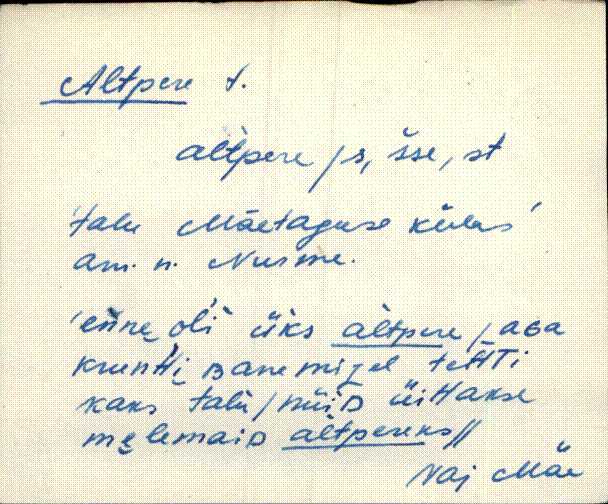 Altpere t.
altpere /s, sse, st
'talu Mäetaguse külas'
am. n. Nurme.
'enne oli üks altpere / aGa
krunTi Banemizel tehTi
kaks talu / nüiD üiTTakse
mẹlemaiD altpereks //
Vaj Mäe